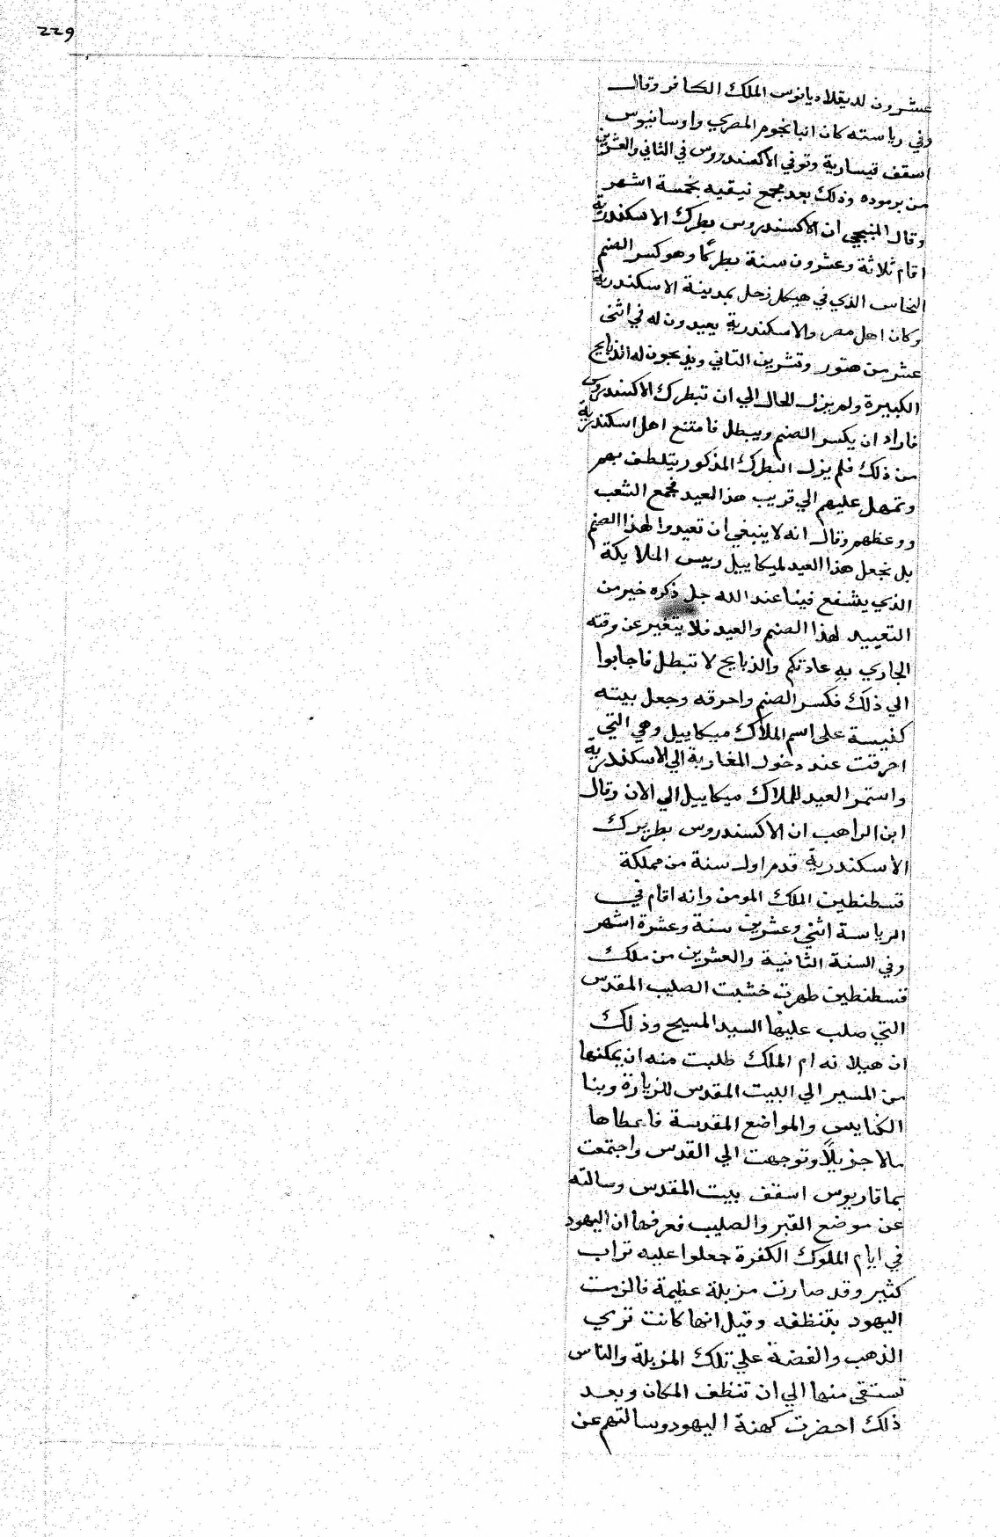 229
عشرون لديقلاديانوس الملك الكافر وقال
وفي رياسته كان انبا بخوم المصري واوسانيوس
اسقف قيسارية وتوفي الاكسندروس في الثاني والعشرين
من برموده وذلك بعد مجمع نيقيه بخمسة اشهر
وقال المنبجي ان الاكسندروس بطرك الاسكندرية
اقام ثلاثة وعشرون سنة بطركا وهو كسر الصنم
النحاس الذي في هيكل زحل بمدينة الاسكندرية
وكان اهل مصر والاسكندرية يعيدون له في اثنى
عشر من هتور وتشرين الثاني ويذبحون له الذبايح
الكبيرة ولم يزل الحال الي ان تبطرك الاكسندروس
فاراد ان يكسر الصنم ويبطل فامتنع اهل اسكندرية
من ذلك فلم يزل البطرك المذكور يتلطف بهم
وتمهل عليهم الي قريب هذا العيد فجمع الشعب
ووعظهم وقال انه لا ينبغي ان تعيدوا لهذا الصنم
بل نجعل هذا العيد لميكاييل رييس الملايكة
الذي يشفع فينا عند الله جل ذكره خير من
التعييد لهذا الصنم والعيد فلا يتغير عن وقته
الجاري به عادتكم والذبايح لا تبطل فاجابوا
الي ذلك فكسر الصنم واحرقه وجعل بيته
كنيسة على اسم الملاك ميكاييل وهي التي
احرقت عند دخول المغاربة الي الاسكندرية
واستمر العيد للملاك ميكاييل الي الان وقال
ابن الراهب ان الاكسندروس بطريرك
الاسكندرية قدم اول سنة من مملكة
قسطنطين الملك المومن وانه اقام في
الرياسة اثني وعشرين سنة وعشرة اشهر
وفي السنة الثانية والعشرين من ملك
قسطنطين ظهرت خشبت الصليب المقدس
التي صلب عليها السيد المسيح وذلك
ان هيلانه ام الملك طلبت منه ان يمكنها
من المسير الي البيت المقدس للزيارة وبنا
الكنايس والمواضع المقدسة فاعطاها
مالا جزيلا وتوجهت الي القدس واجتمعت
بماقاريوس اسقف بيت المقدس وسالته
عن موضع القبر والصليب فعرفها ان اليهود
في ايام الملوك الكفرة جعلوا عليه تراب
كثير وقد صارت مزبلة عظيمة فالزمت
اليهود بتنظفه وقيل انها كانت ترمي
الذهب والفضة علي تلك المزبلة والناس
تستقي منها الي ان تنظف المكان وبعد
ذلك احضرت كهنة اليهود وسالتهم عن